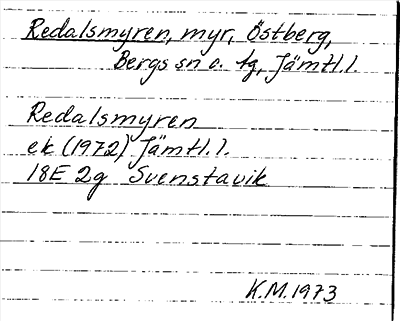 Redalsmyren, myr, Östberg,
Bergs sn o. tg, Jämtl.l.
Redalsmyren
ek (1972) Jämtl.l.
18E 2g Svenstavik
K.M.1973